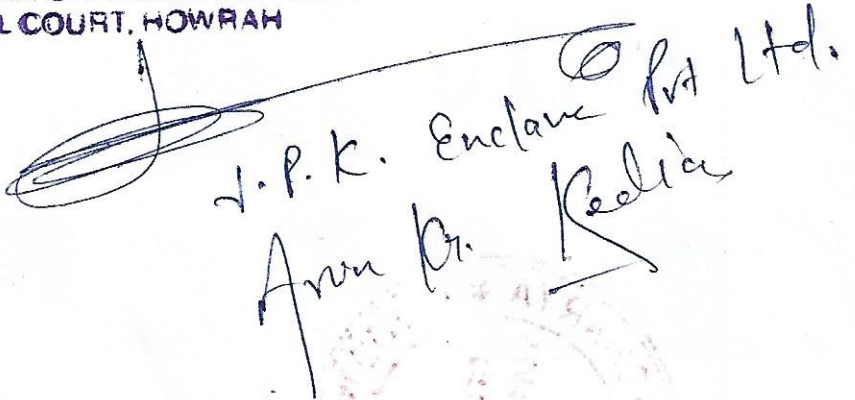 L COURT. HOWRAH
J.P.K. Enclave Pvt Ltd.
Arun Kr. Kedia